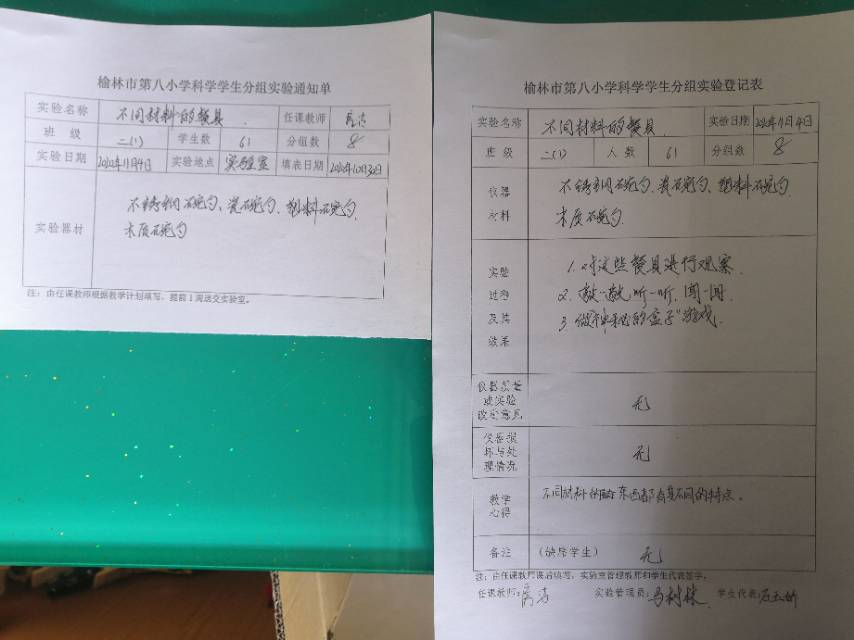 榆林市第八小学科学学生分组实验通知单
实验名称 不同材料的餐具 任课教师
班 级 二(1) 学生数 61 分组数 8
实验日期 2020年11月4日 实验地点 实验室 填表日期 2020年10月30日
实验器材 不锈钢碗勺、瓷碗勺、塑料碗勺
木质碗勺
注：由任课教师根据教学计划填写，提前1周送交实验室。
榆林市第八小学科学学生分组实验登记表
实验名称 不同材料的餐具 实验日期 2020年11月4日
班 级 二(1) 人 数 61 分组数 8
仪器 不锈钢碗勺、瓷碗勺、塑料碗勺
材料 木质碗勺
实验 1. 对这些餐具进行观察
过程 2. 敲一敲、听一听、闻一闻
及其 3. 做"神秘的盒子"游戏
效果
仪器改进
或实验 无
改进意见
仪器损
坏与处 无
理情况
教学 不同材料的东西都有其不同的特点。
心得
备注 (缺席学生) 无
注：由任课教师课后填写，实验室管理教师和学生代表签字。
任课教师: 实验管理员: 马树林 学生代表: